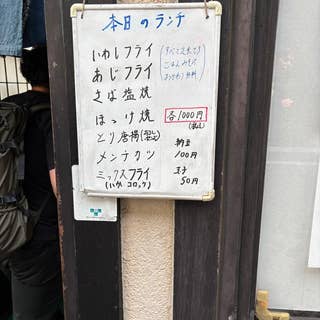 本日のランチ
いわしフライ
あじフライ
さば塩焼
ほっけ焼
とり唐揚(定食)
メンチカツ
ミックスフライ
(ハムカツ コロッケ)
(すべて定食です
ごはんみそ汁
おかわり無料)
各1000円
(税込)
納豆
100円
玉子
50円